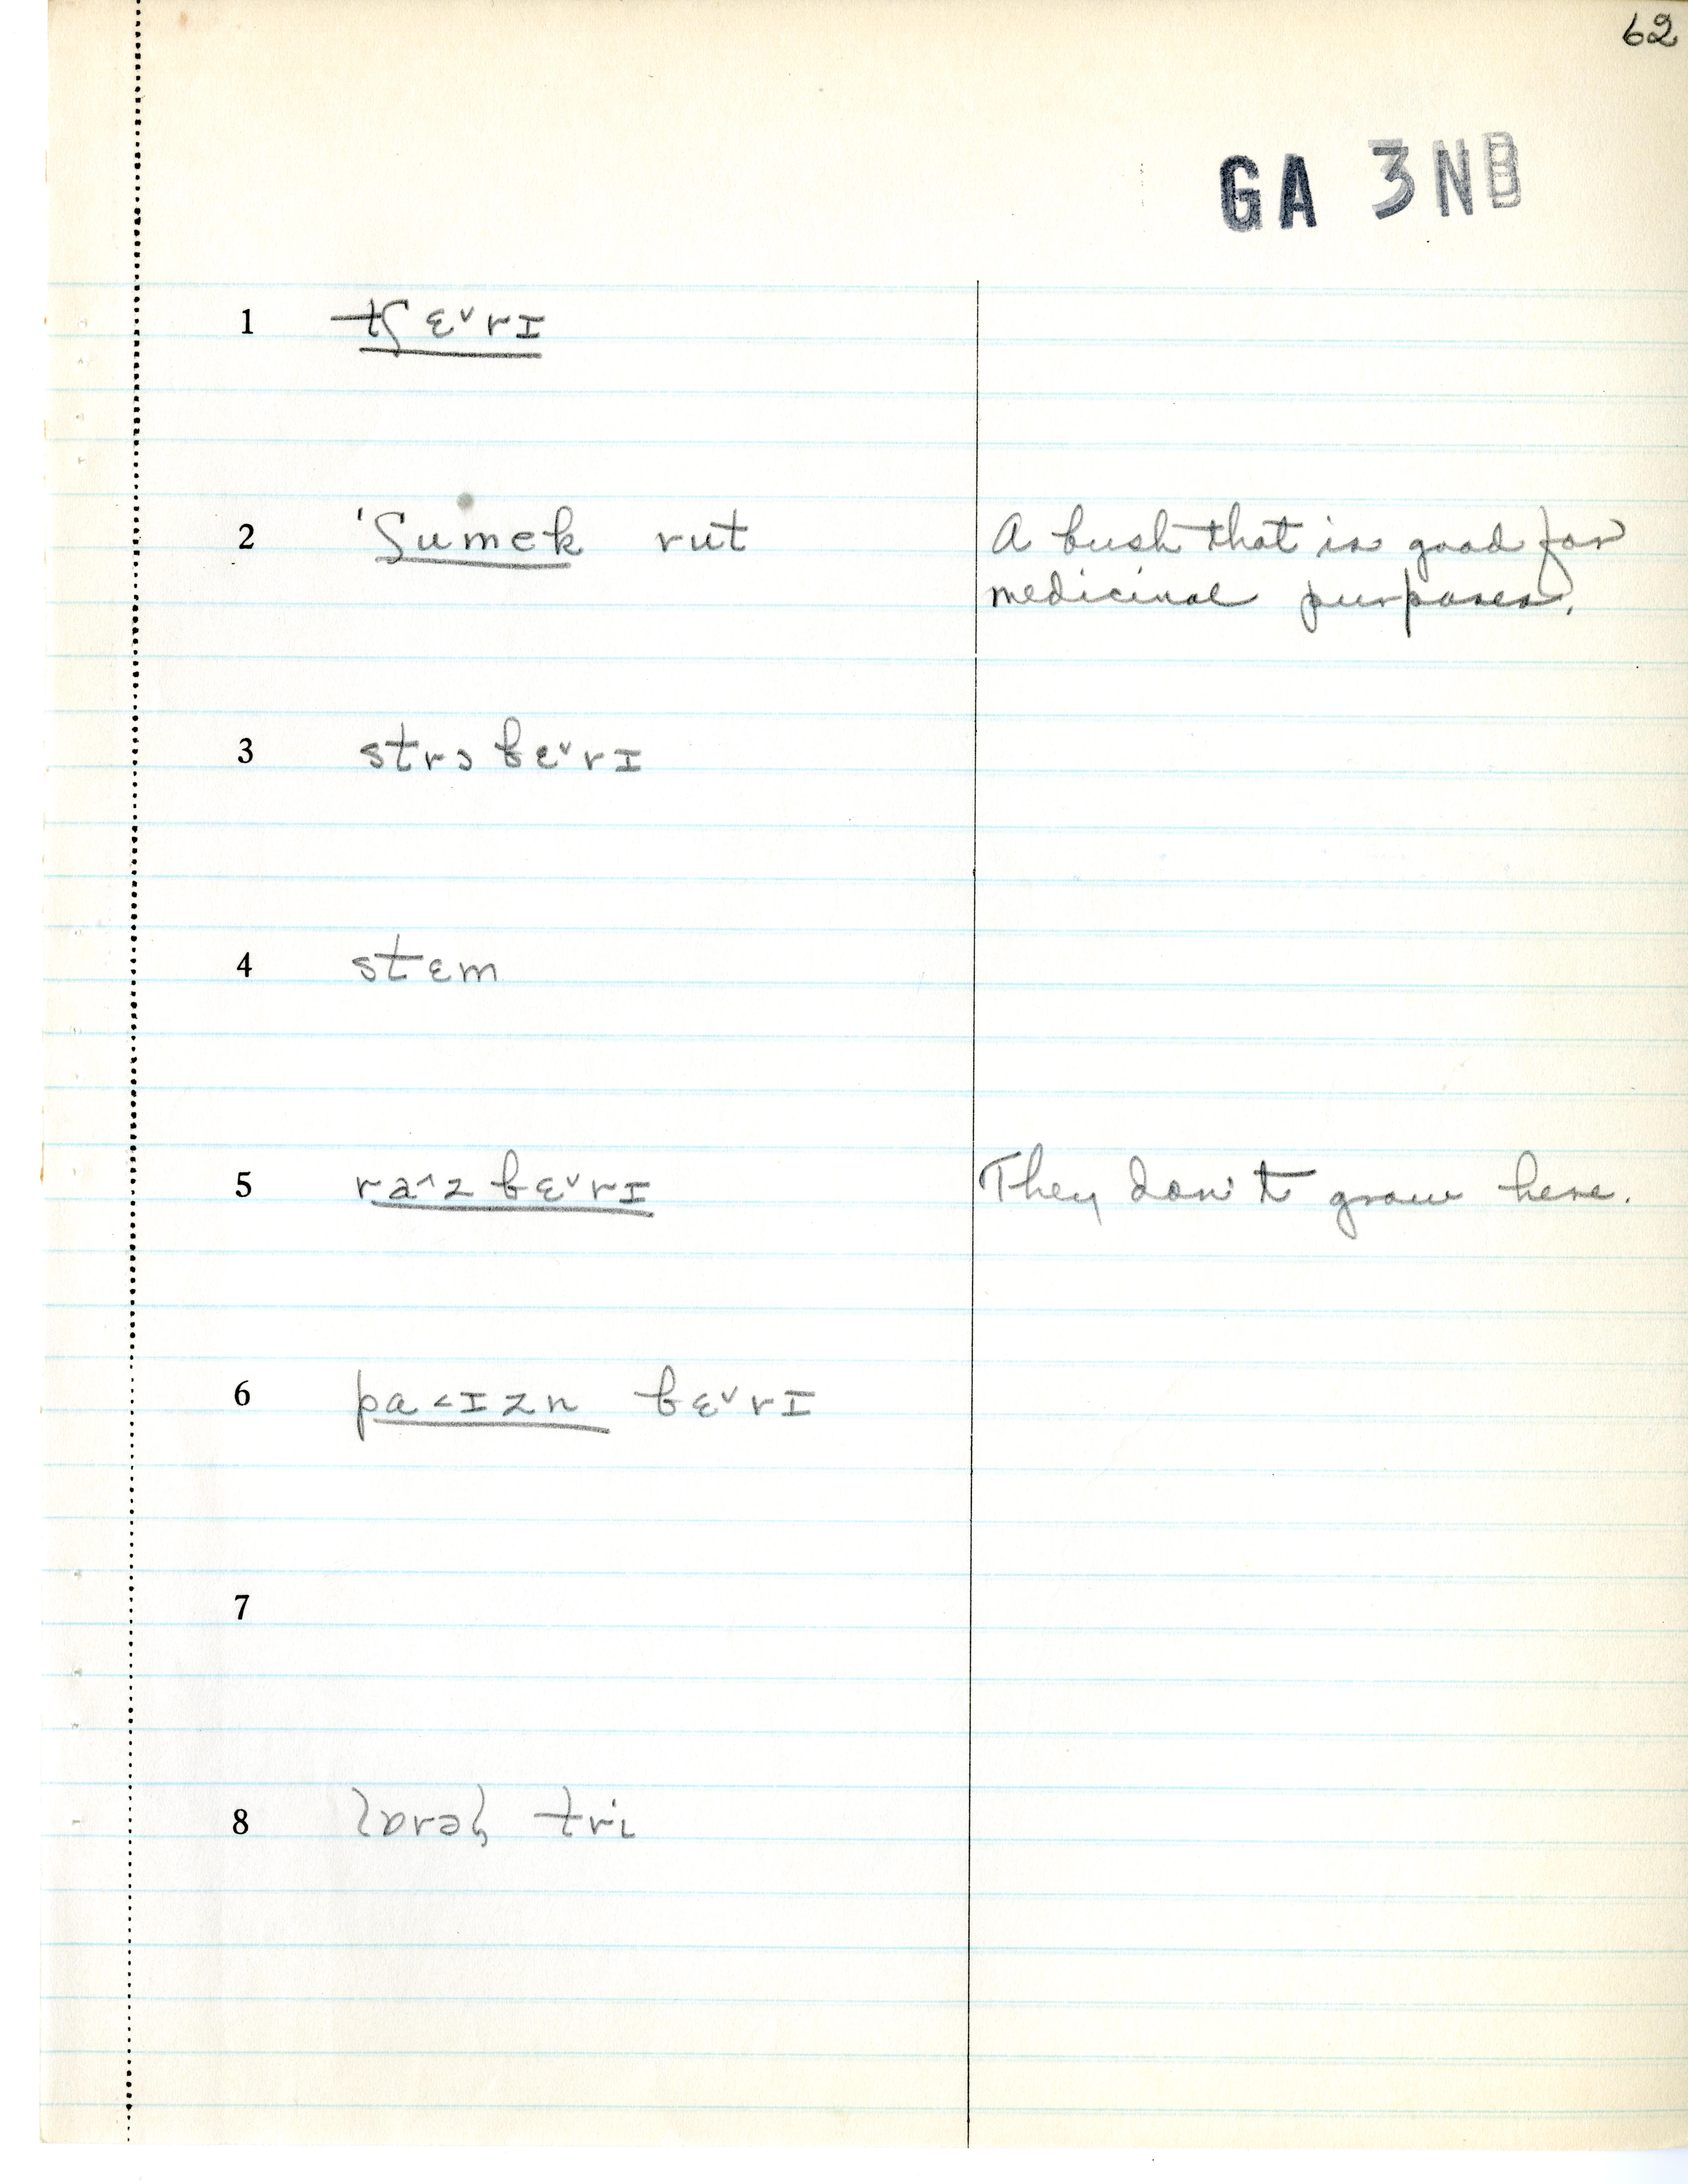 62
GA 3NB
1 tʃɛ˅rɪ
2 ˈʃumek rut A bush that is good for
medicinal purposes.
3 strɔbɛ˅rɪ
4 stɛm
5 ra^zbɛ˅rɪ They don't grow here.
6 pa<ɪzn bɛ˅rɪ
7
8 lɒrəl tri